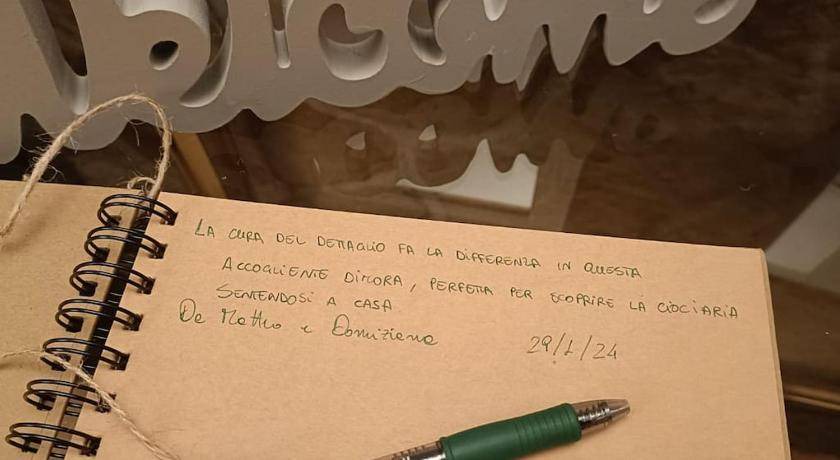 Welcome
LA CURA DEL DETTAGLIO FA LA DIFFERENZA IN QUESTA
ACCOGLIENTE DIMORA, PERFETTA PER SCOPRIRE LA CIOCIARIA
SENTENDOSI A CASA
Da Matteo e Domiziana
29/1/24